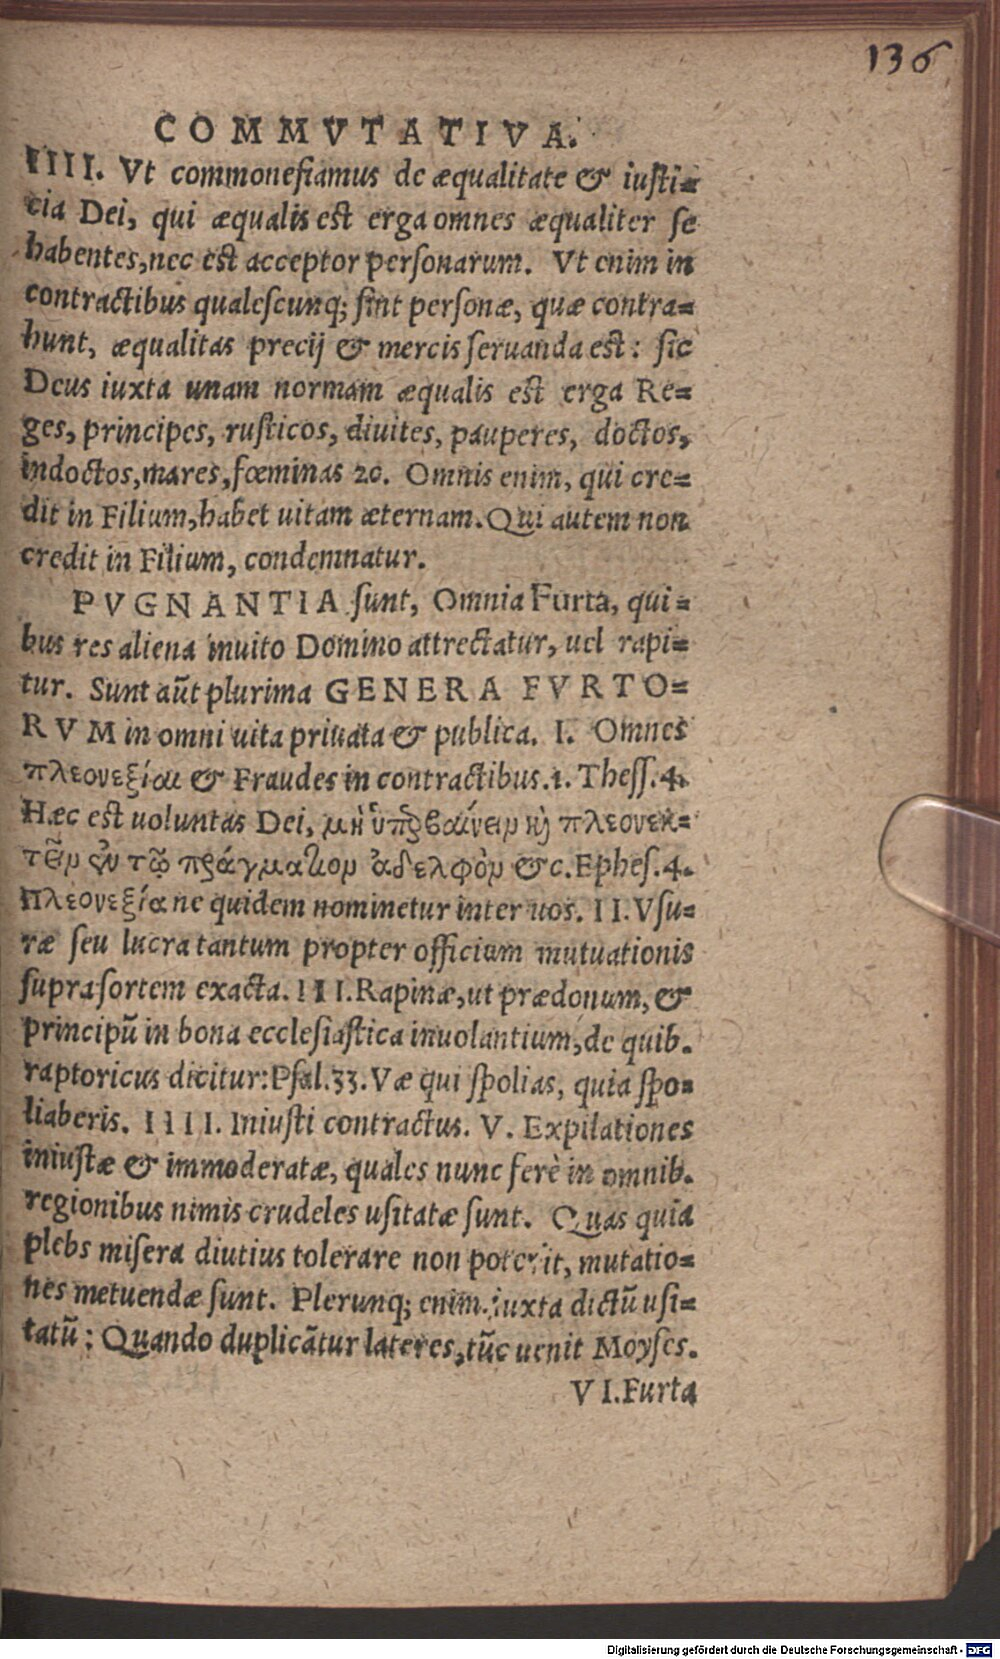 136
COMMVTATIVA.
IIII. Vt commonefiamus de æqualitate & iusti=
cia Dei, qui æqualis est erga omnes æqualiter se
habentes, nec est acceptor personarum. Vt enim in
contractibus qualescunq; sint personæ, quæ contra=
hunt, æqualitas precij & mercis seruanda est: sic
Deus iuxta unam normam æqualis est erga Re=
ges, principes, rusticos, diuites, pauperes, doctos,
indoctos, mares, fœminas 2c. Omnis enim, qui cre=
dit in Filium, habet uitam æternam. Qui autem non
credit in Filium, condemnatur.
PVGNANTIA sunt, Omnia Furta, qui=
bus res aliena inuito Domino attrectatur, uel rapi=
tur. Sunt aũt plurima GENERA FVRTO=
RVM in omni uita priuata & publica. I. Omnes
πλεονεξίαι & Fraudes in contractibus. 1. Thess. 4.
Hæc est uoluntas Dei, μὴ ὑπερβαίνειν καὶ πλεονεκ=
τεῖν ἐν τῷ πράγματι τὸν ἀδελφὸν &c. Ephes. 4.
Πλεονεξία ne quidem nominetur inter uos. II. Vsu=
ræ seu lucra tantum propter officium mutuationis
supra sortem exacta. III. Rapinæ, ut prædonum, &
principũ in bona ecclesiastica inuolantium, de quib.
raptoribus dicitur: Psal. 33. Væ qui spolias, quia spo=
liaberis. IIII. Iniusti contractus. V. Expilationes
iniustæ & immoderatæ, quales nunc ferè in omnib.
regionibus nimis crudeles usitatæ sunt. Quas quia
plebs misera diutius tolerare non poterit, mutatio=
nes metuendæ sunt. Plerunq; enim iuxta dictũ usi=
tatũ: Quando duplicãtur lateres, tũc uenit Moyses.
VI. Furta
Digitalisierung gefördert durch die Deutsche Forschungsgemeinschaft - DFG